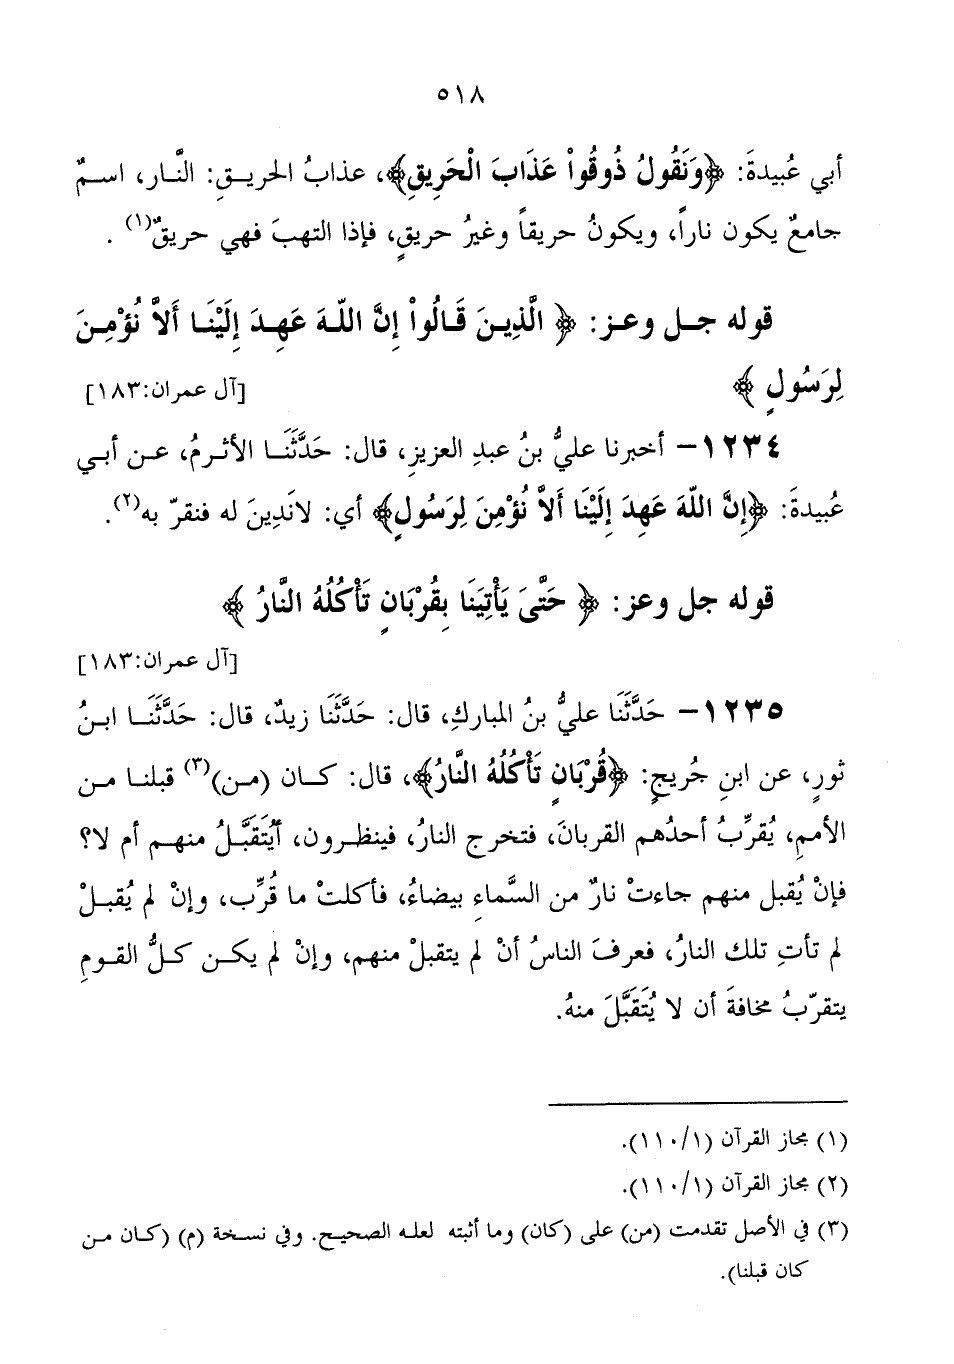 ٥١٨
أبي عُبيدةَ: ﴿وَنَقُولُ ذُوقُواْ عَذَابَ الْحَرِيقِ﴾، عذابُ الحريقِ: النَّار، اسمٌ
جامعٌ يكون ناراً، ويكونُ حريقاً وغيرُ حريقٍ، فإذا التهبَ فهي حريقٌ(١) .
قوله جل وعز: ﴿ الَّذِينَ قَالُواْ إِنَّ اللَّهَ عَهِدَ إِلَيْنَا أَلاَّ نُؤْمِنَ
لِرَسُولٍ ﴾ [آل عمران:١٨٣]
١٢٣٤- أخبرنا عليُّ بنُ عبدِ العزيزِ، قال: حَدَّثَنَا الأثرمُ، عن أبي
عُبيدةَ: ﴿إِنَّ اللَّهَ عَهِدَ إِلَيْنَا أَلاَّ نُؤْمِنَ لِرَسُولٍ﴾ أي: لانَدِينَ له فنقرّ به(٢).
قوله جل وعز: ﴿ حَتَّىَ يَأْتِيَنَا بِقُرْبَانٍ تَأْكُلُهُ النَّارُ ﴾
[آل عمران:١٨٣]
١٢٣٥- حَدَّثَنَا عليُّ بنُ المباركِ، قال: حَدَّثَنَا زيدٌ، قال: حَدَّثَنَا ابنُ
ثورٍ، عن ابنِ جُريجٍ: ﴿قُرْبَانٍ تَأْكُلُهُ النَّارُ﴾، قال: كان (من)(٣) قبلنا من
الأممِ، يُقرِّبُ أحدُهم القربانَ، فتخرج النارُ، فينظرون، أيُتَقَبَّلُ منهم أم لا؟
فإنْ يُقبل منهم جاءتْ نارٌ من السَّماءِ بيضاءُ، فأكلتْ ما قُرِّب، وإنْ لم يُقبلْ
لم تأتِ تلك النارُ، فعرفَ الناسُ أنْ لم يتقبلْ منهم، وإنْ لم يكن كلُّ القومِ
يتقرّبُ مخافةَ أن لا يُتَقَبَّلَ منهُ.
(١) مجاز القرآن (١١٠/١).
(٢) مجاز القرآن (١١٠/١).
(٣) في الأصل تقدمت (من) على (كان) وما أثبته لعله الصحيح. وفي نسخة (م) (كان من
كان قبلنا).